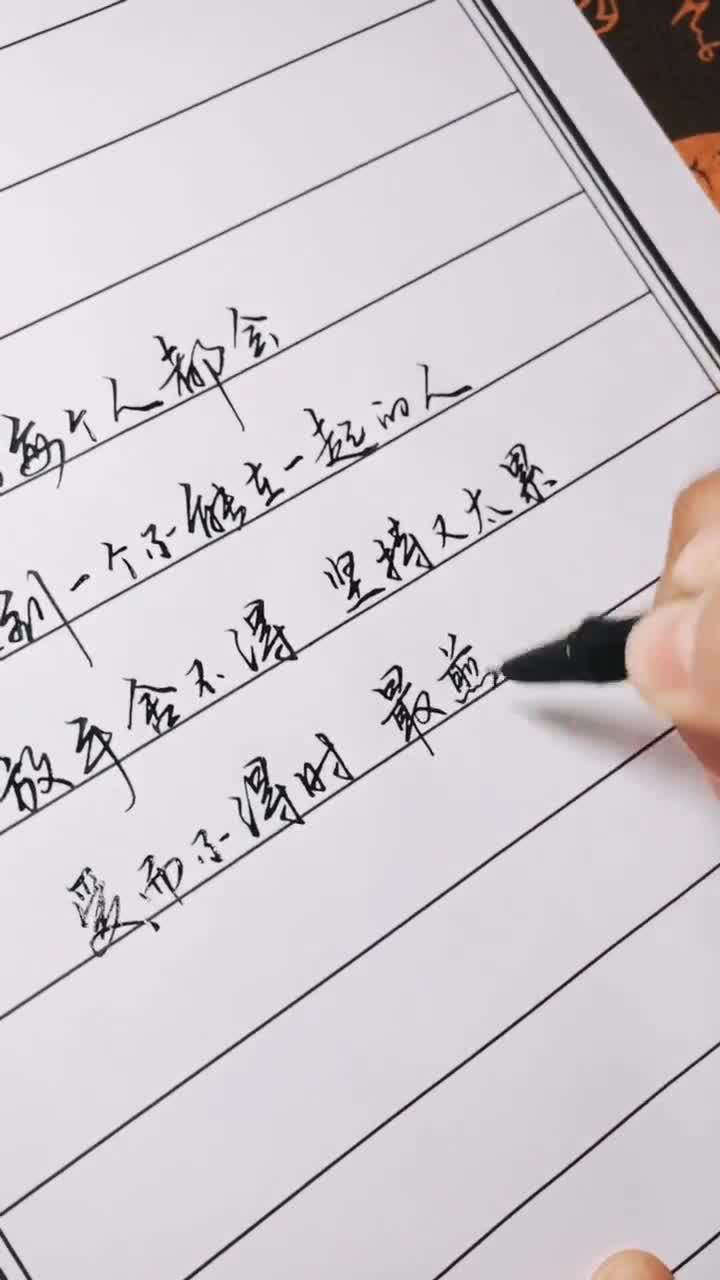 每个人都会
到一个不能在一起的人
放弃舍不得 坚持又太累
爱而不得时 最煎